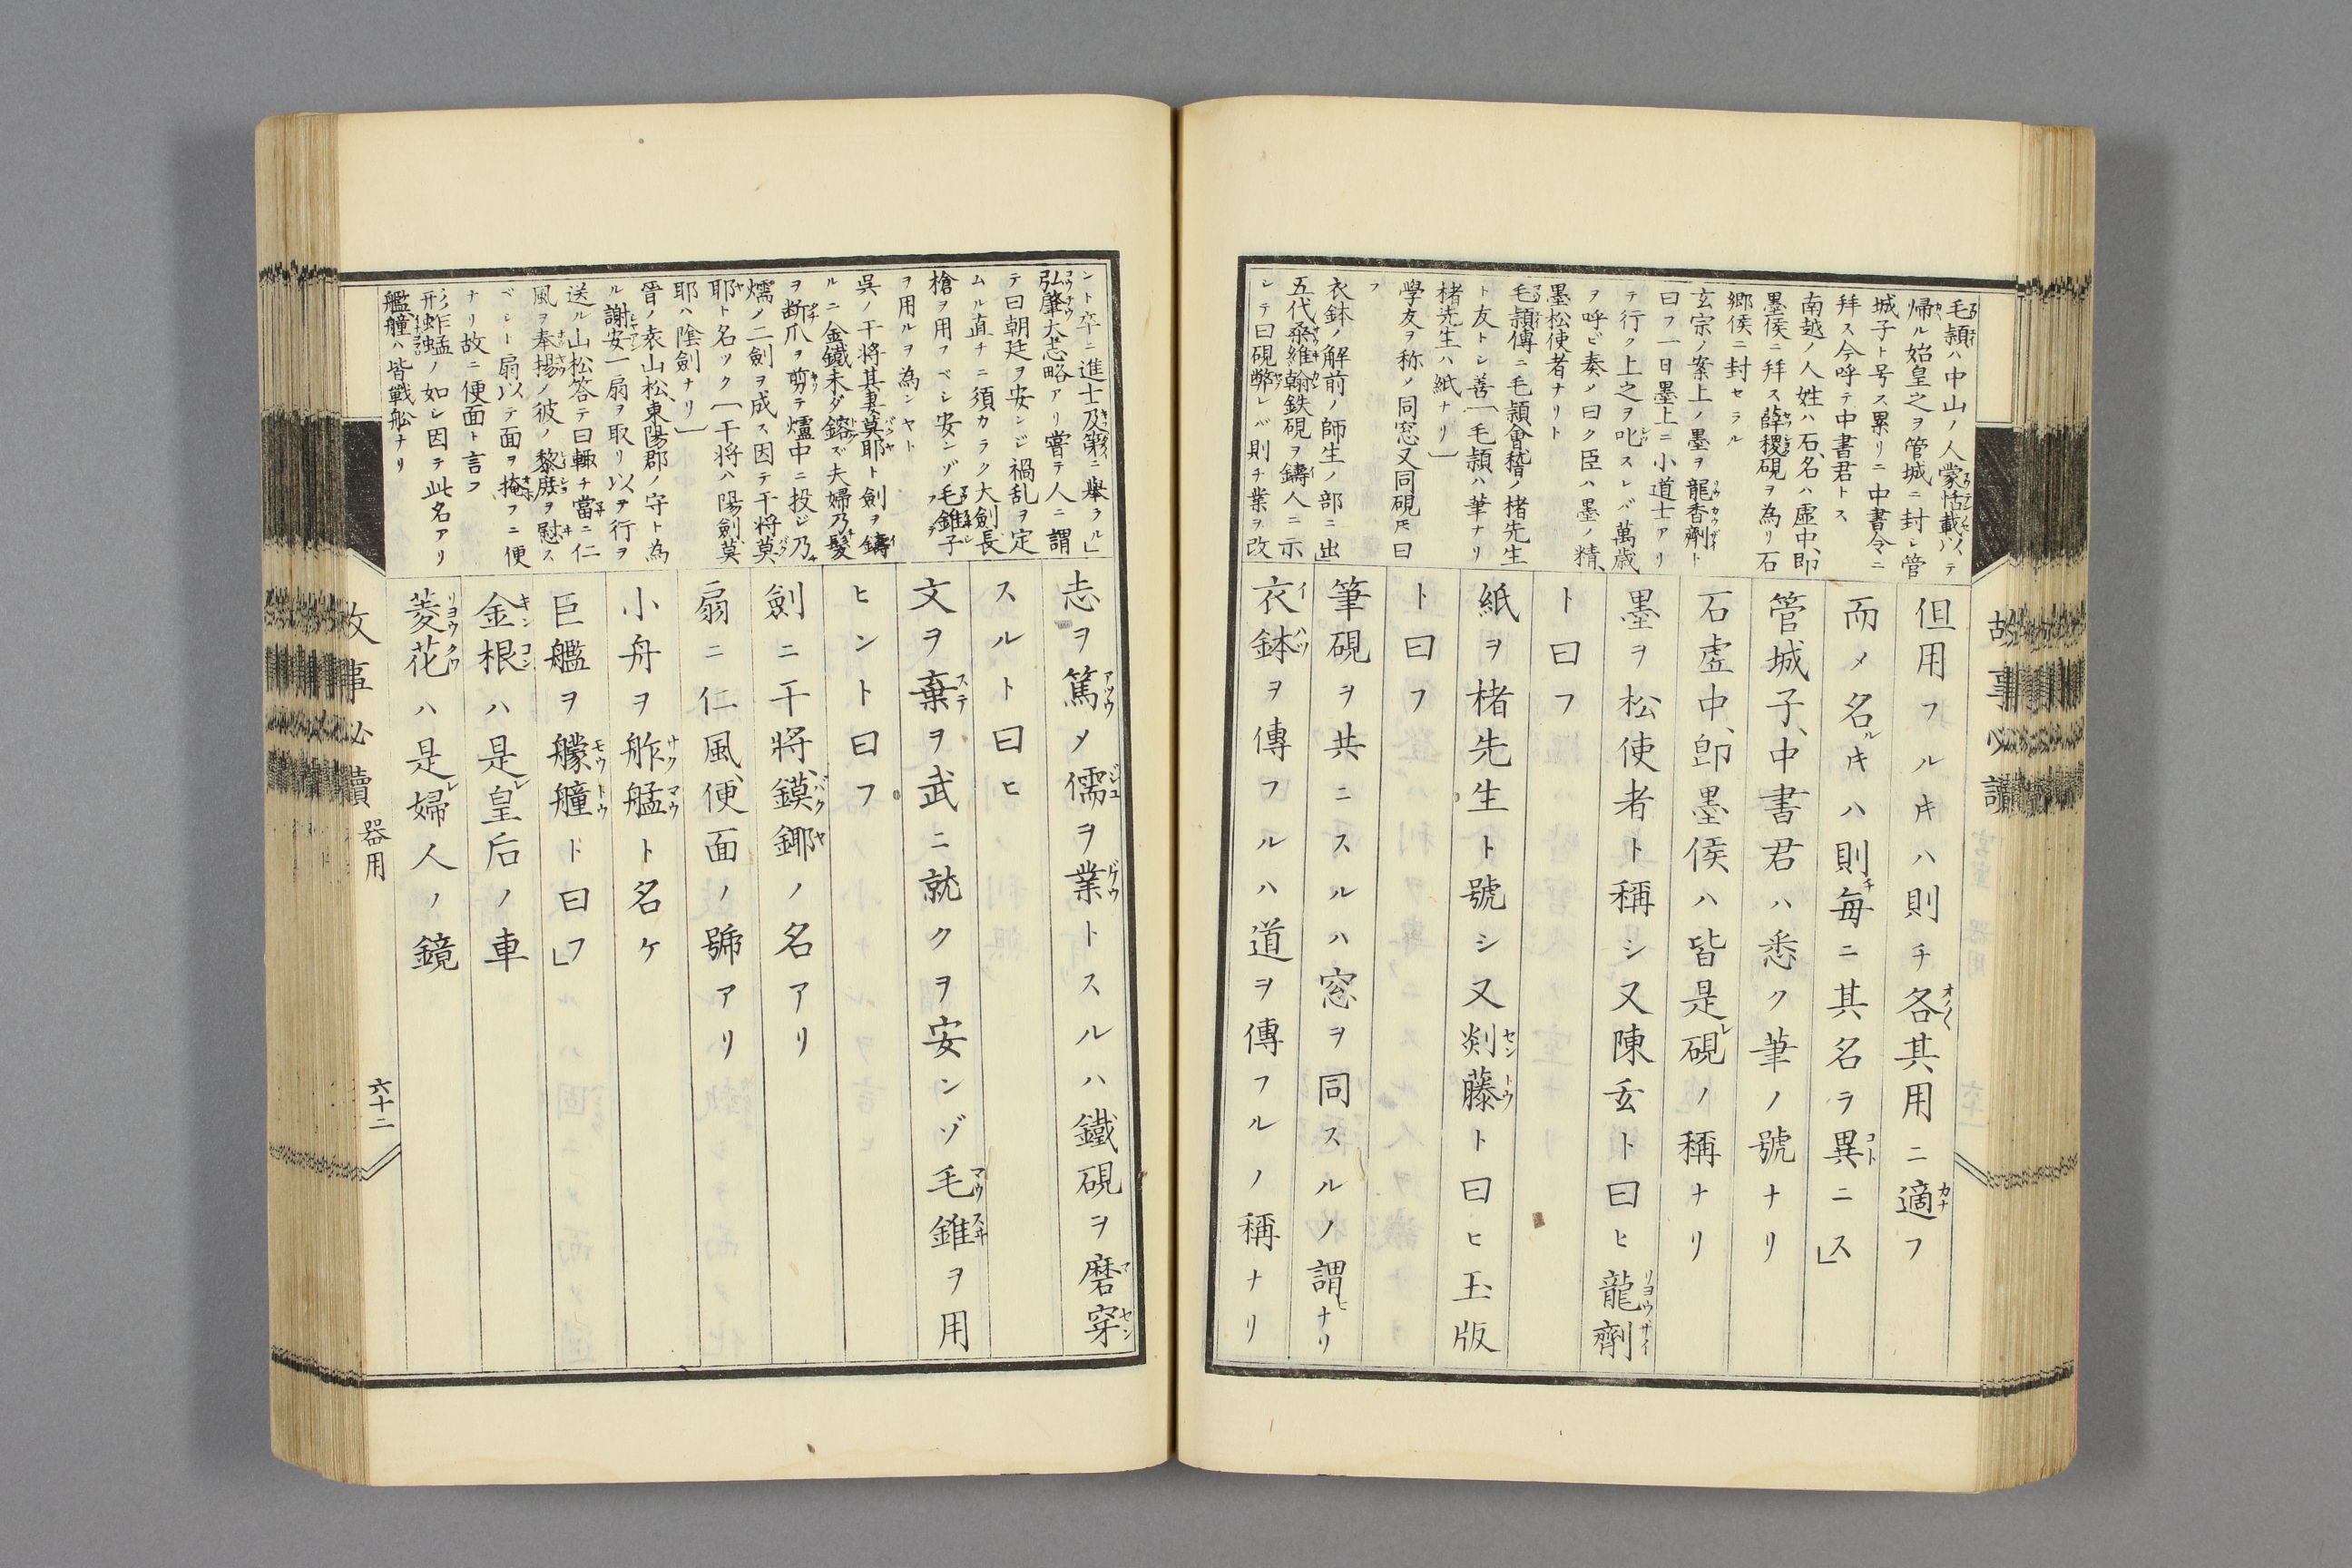 毛頴ハ中山ノ人蒙恬載以テ
帰ル始皇之ヲ管城ニ封シ管
城子ト号ス累リニ中書令ニ
拜ス今呼テ中書君トス
南越ノ人姓ハ石、名ハ虚中、即
墨侯ニ拜ス薛稷硯ヲ為リ石
郷侯ニ封セラル
玄宗ノ案上ノ墨ヲ龍香劑ト
曰フ一日墨上ニ小道士アリ
テ行ク上之ヲ叱スレバ萬歳
ヲ呼ビ奏メ曰ク臣ハ墨ノ精、
墨松使者ナリト
毛頴傳ニ毛頴會稽ノ楮先生
ト友トシ善〔毛頴ハ筆ナリ
楮先生ハ紙ナリ〕
学友ヲ称ノ同窓又同硯𪜈曰
フ
衣鉢ノ解前ノ師生ノ部ニ出」
五代桑維翰鉄硯ヲ鑄人ニ示
シテ曰硯弊レバ則チ業ヲ改
但用フルキハ則チ各其用ニ適フ
而メ名ルキハ則チ毎ニ其名ラ異ニス」
管城子、中書君ハ悉ク筆ノ號ナリ
石虚中、卽墨侯ハ皆是レ硯ノ稱ナリ
墨ヲ松使者ト稱シ又陳玄ト曰ヒ龍劑
ト曰フ
紙ヲ楮先生ト號シ又剡藤ト曰ヒ玉版
ト曰フ
筆硯ヲ共ニスルハ窓ヲ同スルノ謂ヒナリ
衣鉢ヲ傳フルハ道ヲ傳フルノ稱ナリ
故事必讀
ント卒ニ進士及第ニ擧ラル」
弘肇大志略アリ嘗テ人ニ謂
テ曰朝廷ヲ安ンジ禍乱ヲ定
ムル直チニ須カラク大劍長
槍ヲ用フベシ安ンゾ毛錐子
ヲ用ルヲ為ンヤト
呉ノ干将其妻莫耶ト劍ヲ鑄
ルニ金鐵未ダ鎔ズ夫婦乃髪
ヲ断爪ヲ剪テ爐中ニ投ジ乃
燸ノ二劍ヲ成ス因テ干将莫
耶ト名ツク〔干将ハ陽劍、莫
耶ハ陰劍ナリ〕
晉ノ表山松、東陽郡ノ守ト為
ル謝安一扇ヲ取リ以テ行ヲ
送ル山松答テ曰輙チ當ニ仁
風ヲ奉揚ノ彼ノ黎庶ヲ慰ス
ベシト扇以テ面ヲ掩フニ便
ナリ故ニ便面ト言フ
形蚱蜢ノ如シ因テ此名アリ
艦艟ハ皆戰船ナリ
志ヲ篤メ儒ヲ業トスルハ鐵硯ヲ磨穿
スルト曰ヒ
文ヲ棄ヲ武ニ就クヲ安ンゾ毛錐ヲ用
ヒント曰フ
劍ニ干將、鏌鎁ノ名アリ
扇ニ仁風、便面ノ號アリ
小舟ヲ舴艋ト名ケ
巨艦ヲ艨艟ト曰フ」
金根ハ是レ皇后ノ車
菱花ハ是レ婦人ノ鏡
故事必讀 器用 六十二